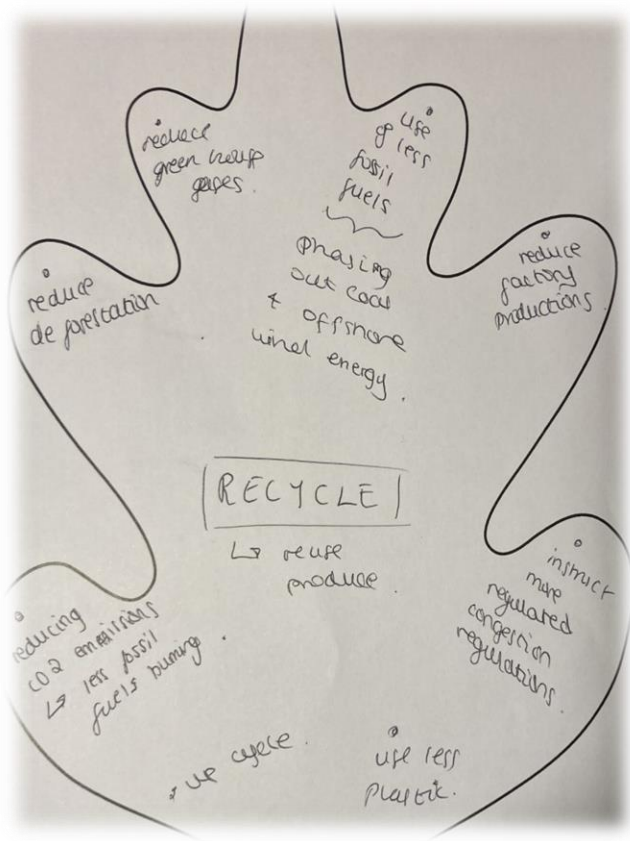 reduce
green house
gases.
use
of less
fossil
fuels
phasing
out coal
& offshore
wind energy.
reduce
de forestation
reduce
factory
productions.
RECYCLE
↳ reuse
produce.
instruct
more
regulated
congestion
regulations.
reducing
CO2 emissions
↳ less fossil
fuels burning.
up cycle.
use less
plastic.